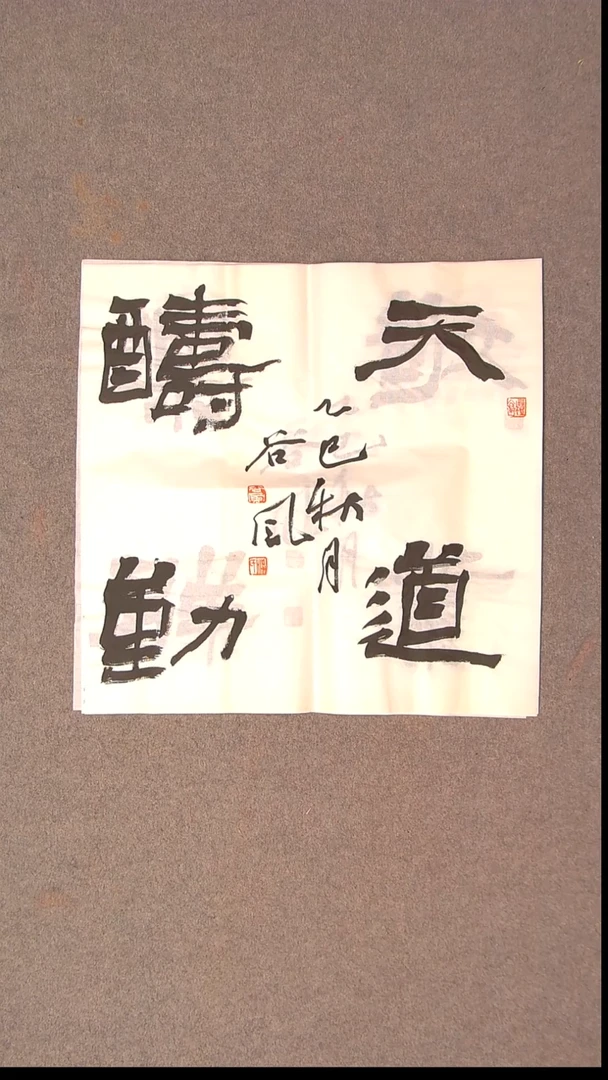 天道
醻動
乙巳秋月
谷風